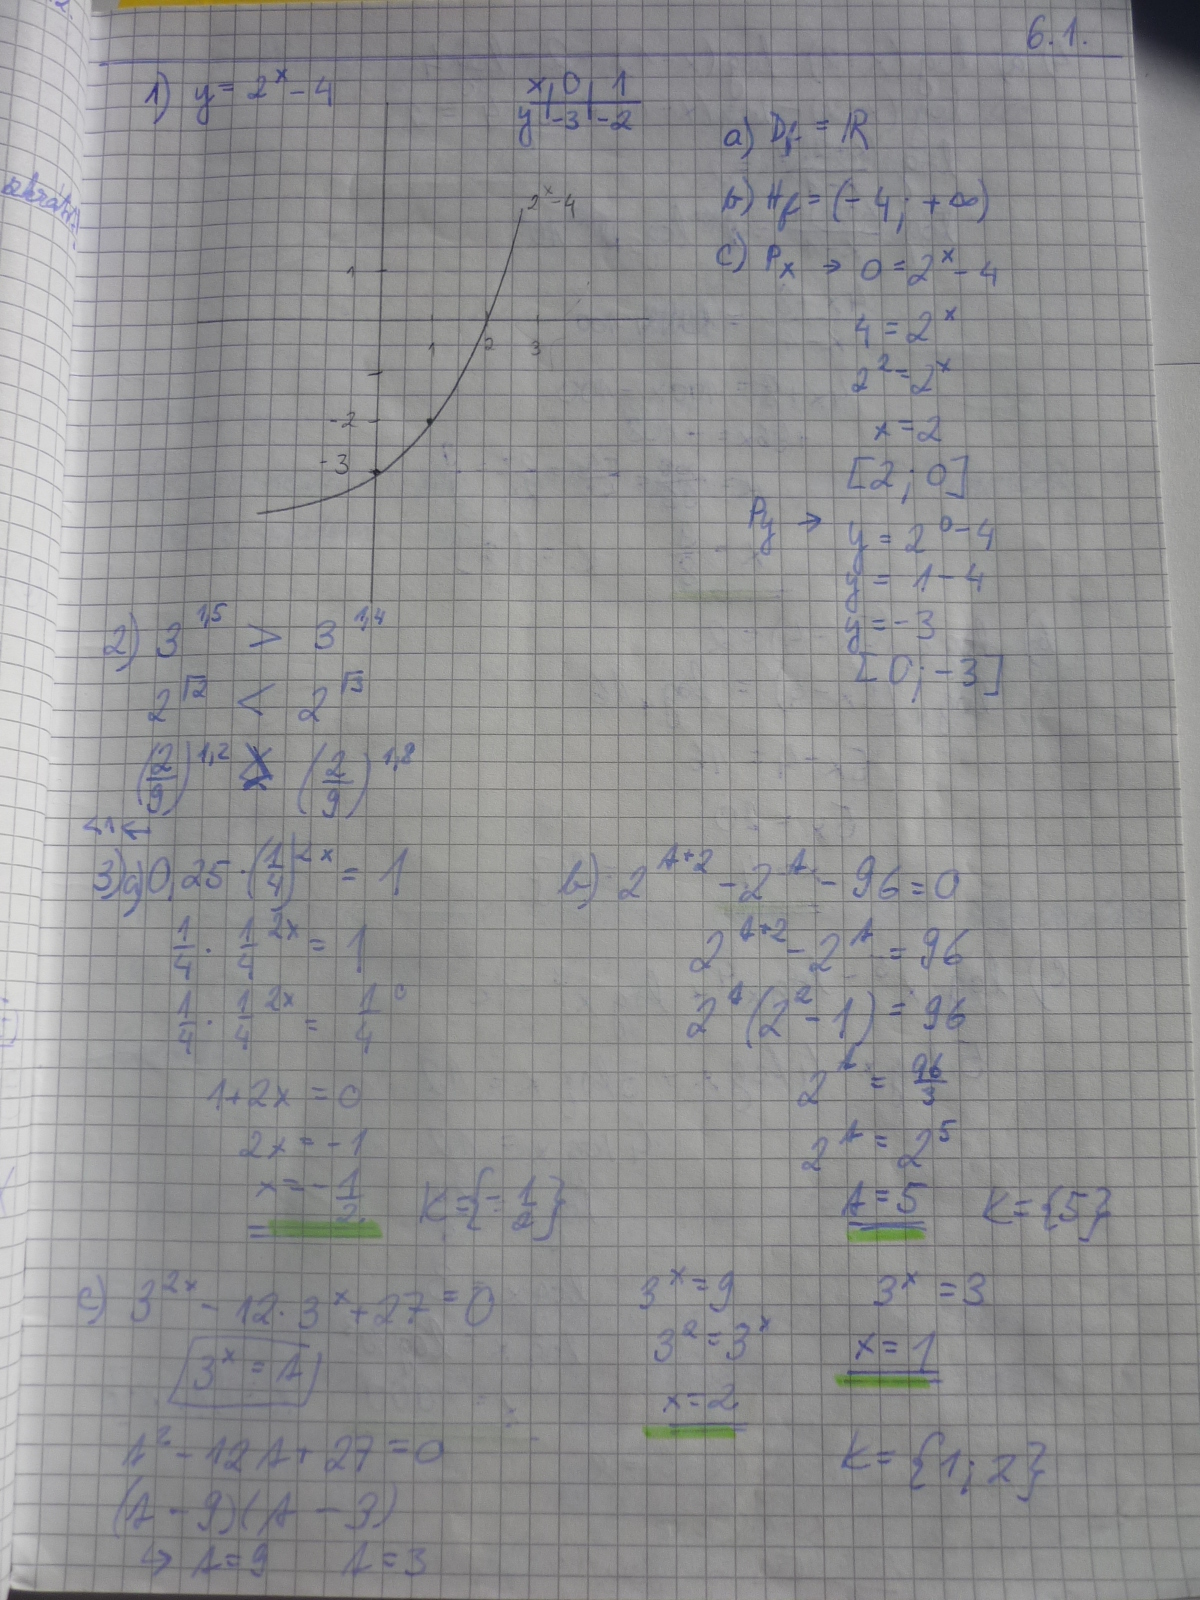 6.1.
1) y = 2^x - 4
x | 0 | 1
y | -3 | -2
2^x - 4
1
1 2 3
-2
-3
a) Df = R
b) Hf = (-4; +∞)
c) Px → 0 = 2^x - 4
4 = 2^x
2^2 = 2^x
x = 2
[2; 0]
Py → y = 2^0 - 4
y = 1 - 4
y = -3
[0; -3]
2) 3^1,5 > 3^1,4
2^√2 < 2^√3
(2/9)^1,2 (2/9)^1,8
<1 ←
3) a) 0,25 · (1/4)^2x = 1
1/4 · 1/4^2x = 1
1/4 · 1/4^2x = 1/4^0
1 + 2x = 0
2x = -1
x = -1/2 K = {-1/2}
b) 2^(A+2) - 2^A - 96 = 0
2^(A+2) - 2^A = 96
2^A (2^2 - 1) = 96
2^A = 96/3
2^A = 2^5
A = 5 K = {5}
c) 3^2x - 12 · 3^x + 27 = 0
3^x = A
A^2 - 12A + 27 = 0
(A - 9)(A - 3)
↳ A = 9 A = 3
3^x = 9
3^2 = 3^x
x = 2
3^x = 3
x = 1
K = {1; 2}